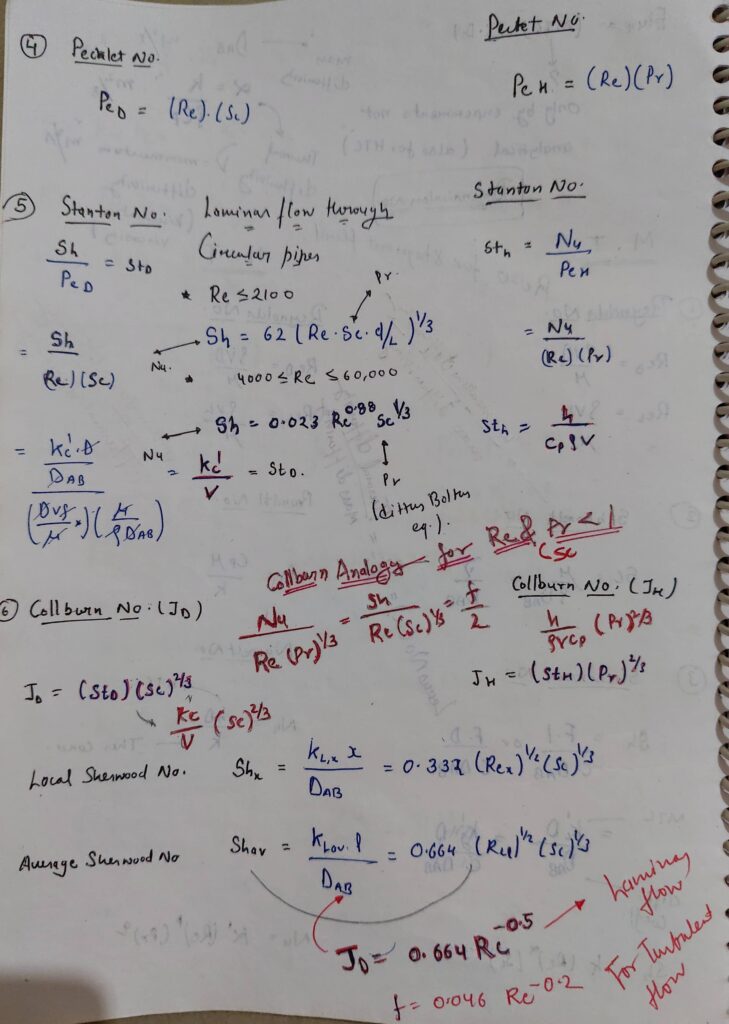 ④ Pecklet No.
Pe_D = (Re).(Sc)
Peclet No.
Pe_H = (Re)(Pr)
⑤ Stanton No.
Sh/Pe_D = St_D
= Sh/Re)(Sc)
= (Kc'.D/D_AB)/((DVρ/μ)(μ/ρD_AB))
= Kc'/V = St_D.
Laminar flow through
Circular pipes
* Re ≤ 2100
Pr.
Sh = 62 (Re.Sc.d/L)^1/3
Nu.
* 4000 ≤ Re ≤ 60,000
Sh = 0.023 Re^0.88 Sc^1/3
Nu
Pr
(dittus Boltus
eq.).
Stanton No.
St_h = Nu/Pe_H
= Nu/(Re)(Pr)
St_h = h/CpρV
Collburn Analogy for Re & Pr < 1
(Sc
Nu/Re(Pr)^1/3 = Sh/Re(Sc)^1/3 = f/2
⑥ Collburn No. (J_D)
J_D = (St_D)(Sc)^2/3
Kc/V (Sc)^2/3
Collburn No. (J_H)
h/ρVCp (Pr)^2/3
J_H = (St_H)(Pr)^2/3
Local Sherwood No. Sh_x = K_L,x x/D_AB = 0.332 (Re_x)^1/2 (Sc)^1/3
Average Sherwood No Sh_av = K_Lav.l/D_AB = 0.664 (Re_l)^1/2 (Sc)^1/3
J_D = 0.664 Re^-0.5
Laminar
flow
f = 0.046 Re^-0.2
For Turbulent
flow